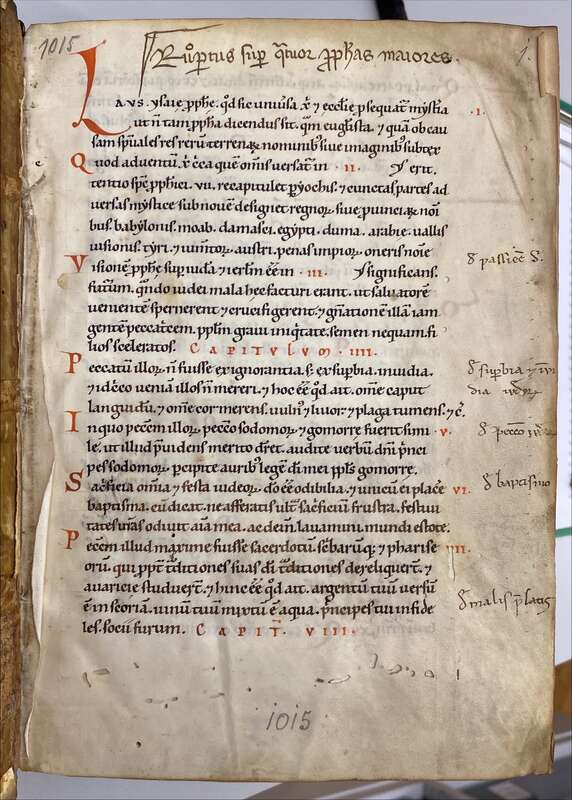 1015
Rup̄tus sup̄ q̄tuor p̄phas maiores.
1.
LAVS. ysaie p̄phe. qd̄ sic uniūsa xp̄i ⁊ ecclie p̄sequat᷑ mystia · I ·
ut ñ tam p̄pha dicendus sit. qm̄ euḡlista. ⁊ quā ob cau
sam sp̄uales res rerū terrenaꝝ nominibꝰ siue imaginibꝰ subtex
Quod aduentū. xp̄i ċca que om̄is uersat᷑ in · II · ⁊ erit.
tentio sp̄c p̄phici. VII. recapitulet ⁊ cunctas partes ad
uersas mystice sub noue designet regnoꝝ. siue puinciaꝝ noi
bus. babylonis. moab. damasci. egypti. duma. arabie. uallis
uisionis. tyri. ⁊ austri. penas impioꝝ. oneris noie
Visionē p̄phe sup iuda ⁊ ierlm̄ eē in · III · ⁊ significans.
futurū. qn̄do iudei mala hec facturi erant. ut saluatorē
uenientē spernerent ⁊ crucifigerent. ⁊ gn̄ationē illā iam
gentē peccatͬcem. pplm̄ graui iniqͥtate. semen nequam. fi
lios sceleratos. CAPITULUM · IIII ·
Peccatū illoꝝ. ñ fuisse ex ignorantia. sꝫ ex supbia. inuidia.
⁊ idcͦco ueniā illos ñ mereri. ⁊ hoc eē qd̄ ait. om̄e caput
languidū. ⁊ om̄e cor merens. uulnꝰ ⁊ liuor. ⁊ plaga tumens. ⁊ c̄.
In quo pecc̄m illoꝝ. peccͦo sodomoꝝ ⁊ gomorre fuerit simi · V ·
le. ut illud puidens merito dic̄ret. audite uerbū dn̄i pͥnci
pes sodomoꝝ. pcipite auribꝰ legē dī mei ppl̄s gomorre.
Sac̄ficia om̄ia ⁊ festa iudeoꝝ. dō eē odibilia. ⁊ unicū ei placē VI.
baptisma. cū dicat. ne afferatis ult̄ sac̄ficiū frustra. festiui
tates ur̄as odiuit aīa mea. ac dein. lauamini. mundi estote.
Pecc̄m illud maxime fuisse sacerdotū. sc̄baruꝫ. ⁊ pharise VII.
orū. qui pp̄t tͣditiones suas dī tͣditiones dereliquer̄t. ⁊
auaricie studuer̄t. ⁊ hinc eē qd̄ ait. argentū tuū uersū
ē in scoriā. uinū tuū mixtū ē aqua. pͥncipes tui infide
les. socii furum. CAPIT̄. VIII.
baptismo
malis
1015